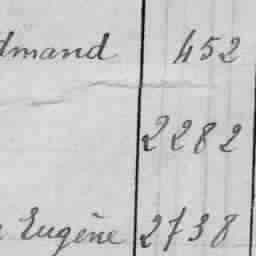 dmand 452
2282
Eugène 2738